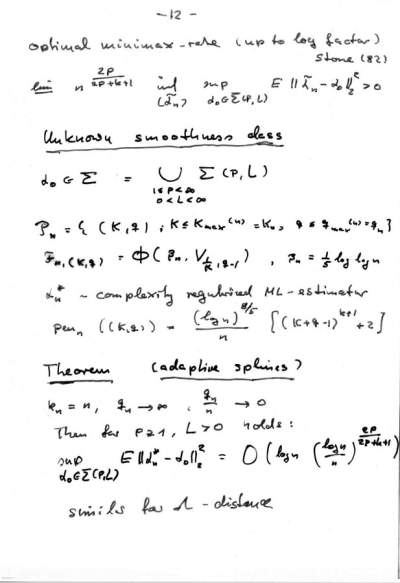 -12-
optimal minimax-rate (up to log factor)
Stone (82)
lim n^{2p/(2p+k+1)} inf_{(α̃_n)} sup_{α_0∈Σ(p,L)} E ||α̃_n - α_0||_2^2 > 0
Unknown smoothness class
α_0 ∈ Σ = ⋃_{1≤p<∞, 0<L<∞} Σ(p,L)
P_n = {(K,q); K ≤ K_max^{(n)} = K_n, q ≤ q_max^{(n)} = q_n}
F_{n,(K,q)} = Φ(β_n, V_{1/K,q-1}), β_n = 1/5 log log n
α_n^* ~ complexity regularized ML-estimator
pen_n((K,q)) = (log n)^{8/5}/n [(K+q-1)^{k+1} + 2]
Theorem (adaptive splines)
K_n = n, q_n → ∞, q_n/n → 0
Then for p≥1, L>0 holds:
sup_{α_0∈Σ(p,L)} E ||α_n^* - α_0||_2^2 = O(log n (log n/n)^{2p/(2p+k+1)})
similar for Λ-distance